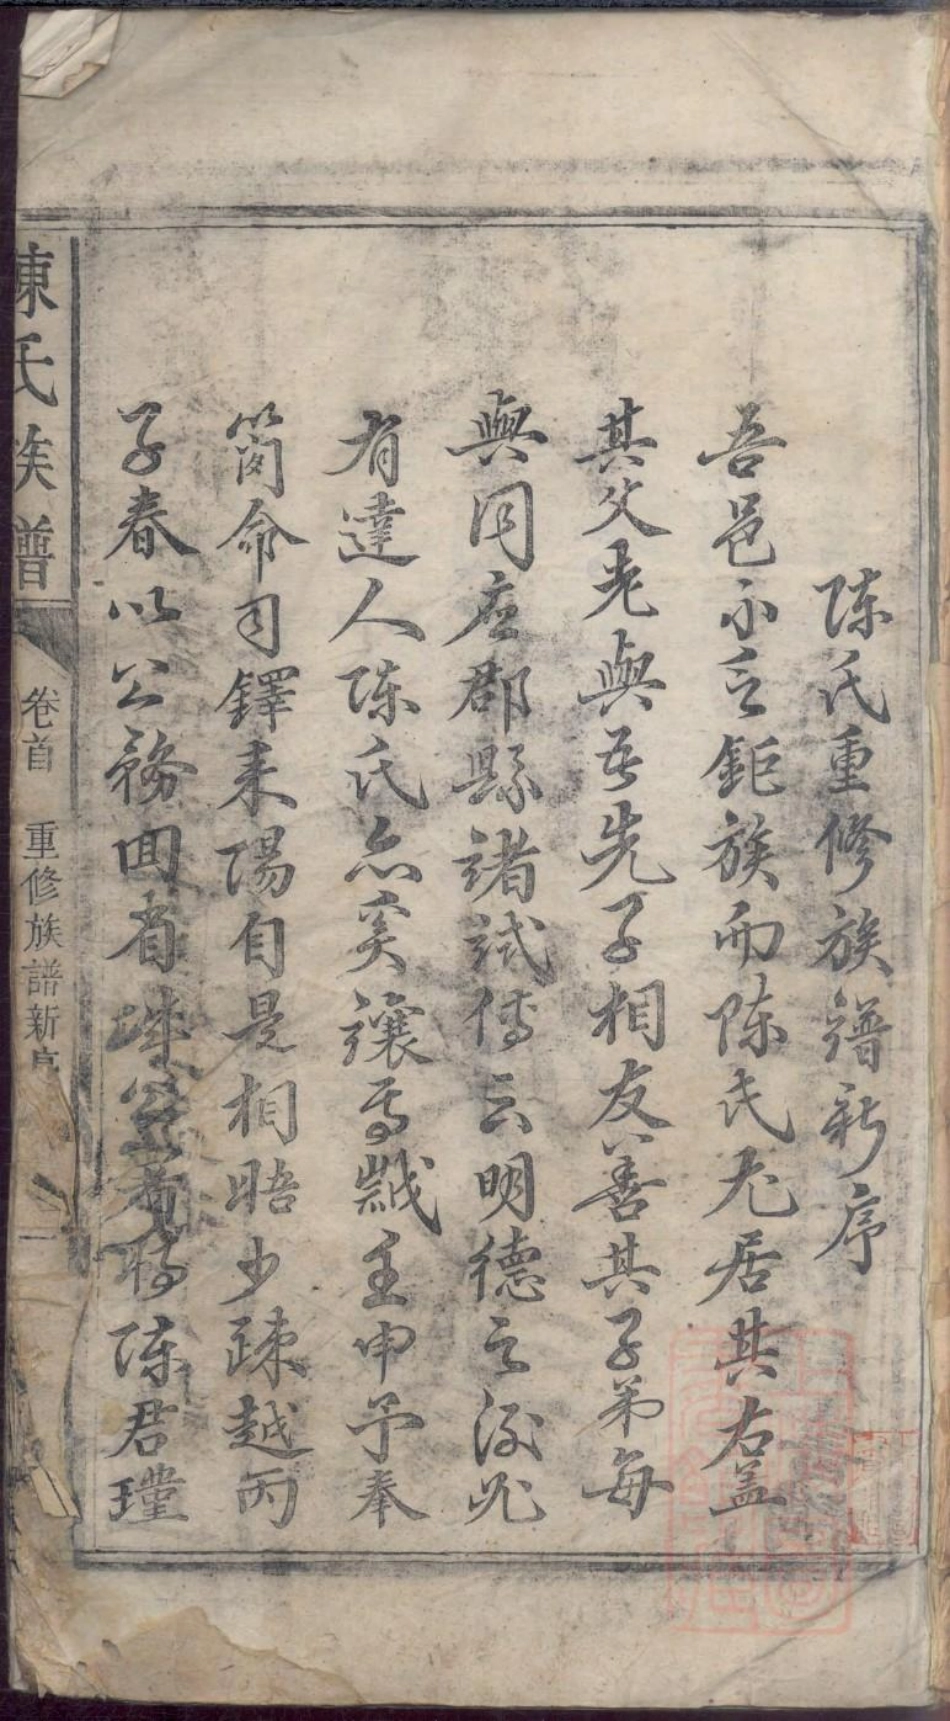 陈氏重修族譜新序
吾邑不乏鉅族而陈氏尤居其右盖
其父老與吾先子相友善其子弟每
與同应郡縣諸試傳云明德之後必
有達人陈氏亦奚讓焉歲壬申予奉
簡命司鐸耒陽自是相晤少踈越丙
子春以公務回省
陈君瑾
陳氏族譜
卷首
重修族譜新序
一